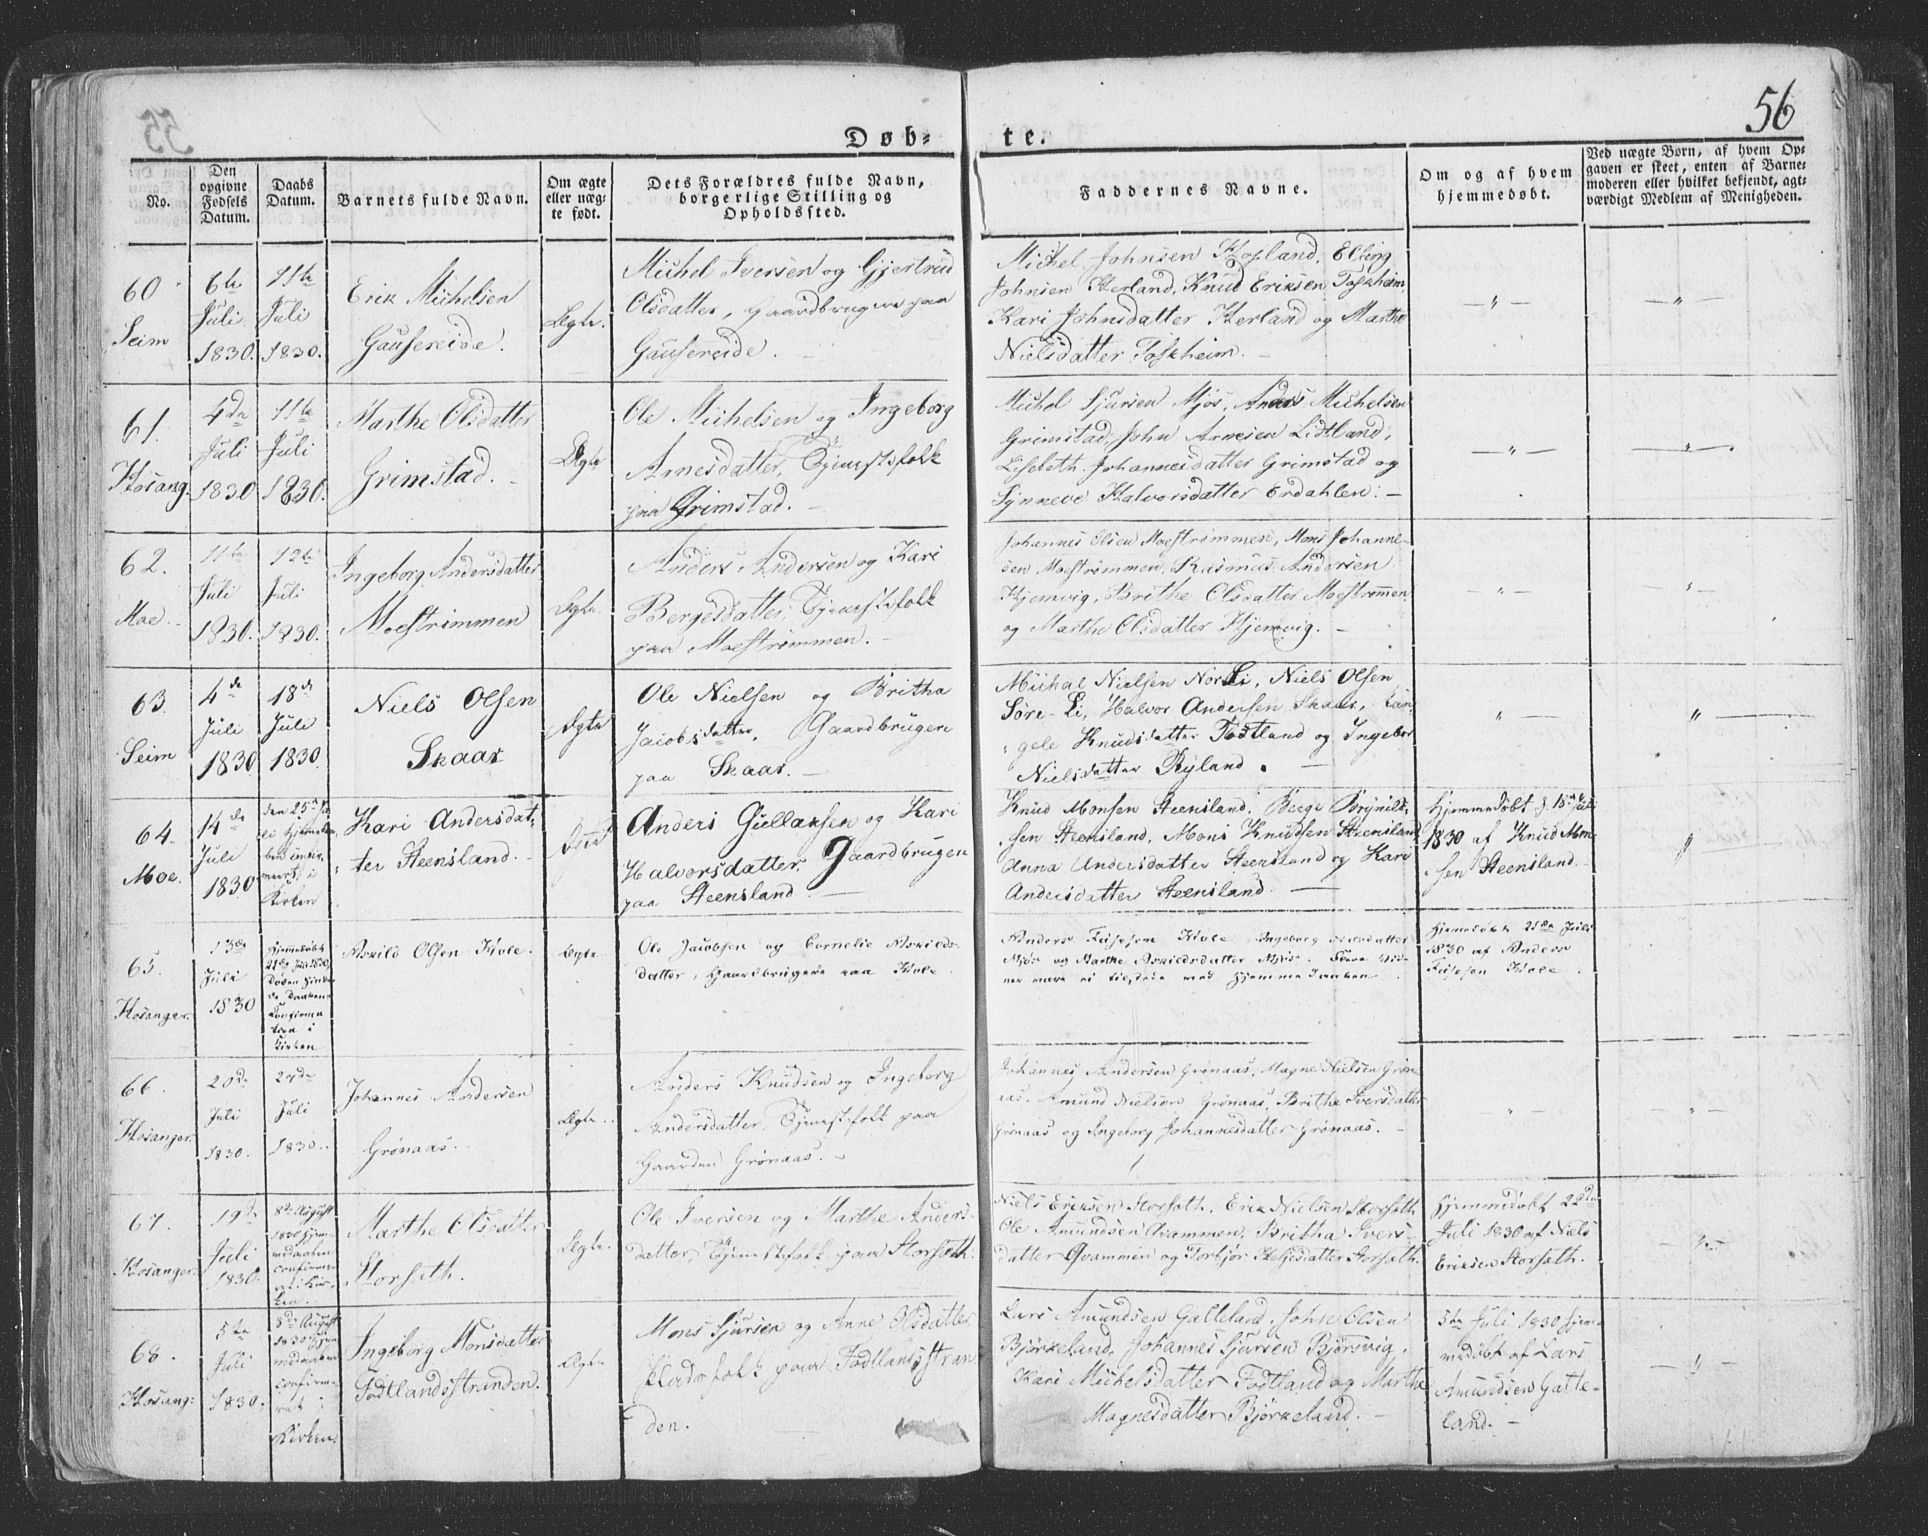 56
Døb-
te.
No.
Den
opgivne
Fødsels
Datum.
Daabs
Datum.
Barnets fulde Navn.
Om ægte
eller uæg-
te født.
Dets Forældres fulde Navn,
borgerlige Stilling og
Opholdssted.
Faddernes Navne.
Om og af hvem
hjemmedøbt.
Ved uægte Børn, af hvem Op-
gaven er skeet, enten af Barne-
moderen eller hvilket bekjendt, agt-
værdigt Medlem af Menigheden.
60
Seim
6te
Juli
1830.
11te
Juli
1830.
Erik Michelsen
Gausereide.
Ægte.
Michel Iversen og Gjertrud
Olsdatter, gaardbrugere paa
Gausereide.
Michel Johnsen Hopland, Elling
Johnsen Herland, Knud Eriksen Toskheim,
Kari Johnsdatter Herland og Marthe
Nielsdatter Toskheim.
61.
Hosang.
4de
Juli
1830
11te
Juli
1830.
Marthe Olsdatter
Grimstad.
Ægte
Ole Michelsen og Ingeborg
Arnesdatter, Tjenestefolk
paa Grimstad.
Michel Sjursen Mjøs, Anders Michelsen
Grimstad, John Arnesen Lidtland,
Lisebeth Johannesdatter Grimstad og
Synneve Halvorsdatter Erdahlen.
62.
Moe.
11te
Juli
1830.
12te
Juli
1830.
Ingeborg Andersdatter
Moestrømmen
Ægte.
Anders Andersen og Kari
Bergesdatter, Tjenestefolk
paa Moestrømmen.
Johannes Olsen Moestrømmen, Mons Johanne-
sen Moestrømmen, Rasmus Andersen
Hjemvig, Brithe Olsdatter Moestrømmen
og Marthe Olsdatter Hjemvig.
63.
Seim
4de
Juli
1830
18de
Juli
1830.
Niels Olsen
Skaar
Ægte
Ole Nielsen og Britha
Jacobsdatter, Gaardbrugere
paa Skaar.
Michal Nielsen Nor Li, Niels Olsen
Søre-Li, Halvor Andersen Skaar,
gele Knudsdatter Fodtland og Ingebor
Nielsdatter Ryland.
64.
Moe.
14de
Juli
1830.
den 25de
Kirken
Kari Andersdat-
ter Steensland.
Anders Gullaksen og Kari
Halvorsdatter, Gaardbrugere
paa Steensland
Knud Monsen Steensland, Berge Brynild-
sen Steensland, Mons Knudsen Steensland
Anna Andersdatter Steensland og Kari
Andersdatter Steensland.
Hjemmedøbt d. 15de Juli
1830 af Knud Mon-
sen Steensland.
65.
Hosanger.
13de
Juli
1830
Hjemmedøbt
21de Juli 1830,
Døden hind-
de Daaben
Confirma
tion i
Kirken
Askild Olsen Hole.
Ægte
Ole Jacobsen og Cornelie Askilds-
datter, Gaardbrugere paa Hole.
Anders Hole, Ingeborg Nielsdatter
Mjøs og Marthe Askildsdatter Mjøs.
ner være ei tilstede ved Hjemme Daaben.
Hjemedøbt 21de Juli
1830 af Anders
Hole.
66.
Hosanger.
20de
Juli
1830.
27de
Juli
1830.
Johannes Andersen
Grønaas.
Ægte.
Anders Knudsen og Ingeborg
Andersdatter, Tjenestefolk paa
Gaarden Grønaas.
Johannes Andersen Grønaas, Magne Nielsen Grøn-
aas, Amund Nielsen Grønaas, Brithe Iversdatter
Grønaas og Ingeborg Johannesdatter Grønaas.
67.
Hosanger.
19de
Juli
1830.
8de August
1830 Hjem-
medaaben
confirme-
ret i Kir-
ken.
Marthe Olsdatter
Storsæth.
Ægte.
Ole Iversen og Marthe Anders-
datter, Tjenestefolk paa Storsæth.
Niels Eriksen Storsæth, Erik Nielsen Storsæth
Ole Amundsen Qvammen, Britha Ivers-
datter Qvammen og Torbjør Helgesdatter Storsæth.
Hjemmedøbt 22de
Juli 1830 af Niels
Eriksen Storsæth.
68.
Hosang.
5te
Juli
1830.
8de August
1830 Hjem-
medaaben
confirme-
ret i
Kirken.
Ingeborg Monsdatter
Fodtlandsstranden.
Ægte.
Mons Sjursen og Anne Olsdatter
Pladsfolk paa Fodtlandsstran-
den.
Lars Amundsen Galteland, John Olsen
Bjørkeland, Johannes Sjursen Bjørsvig,
Kari Michelsdatter Fodtland og Marthe
Magnesdatter Bjørkeland.
5te Juli 1830 hjem-
medøbt af Lars
Amundsen Galte-
land.